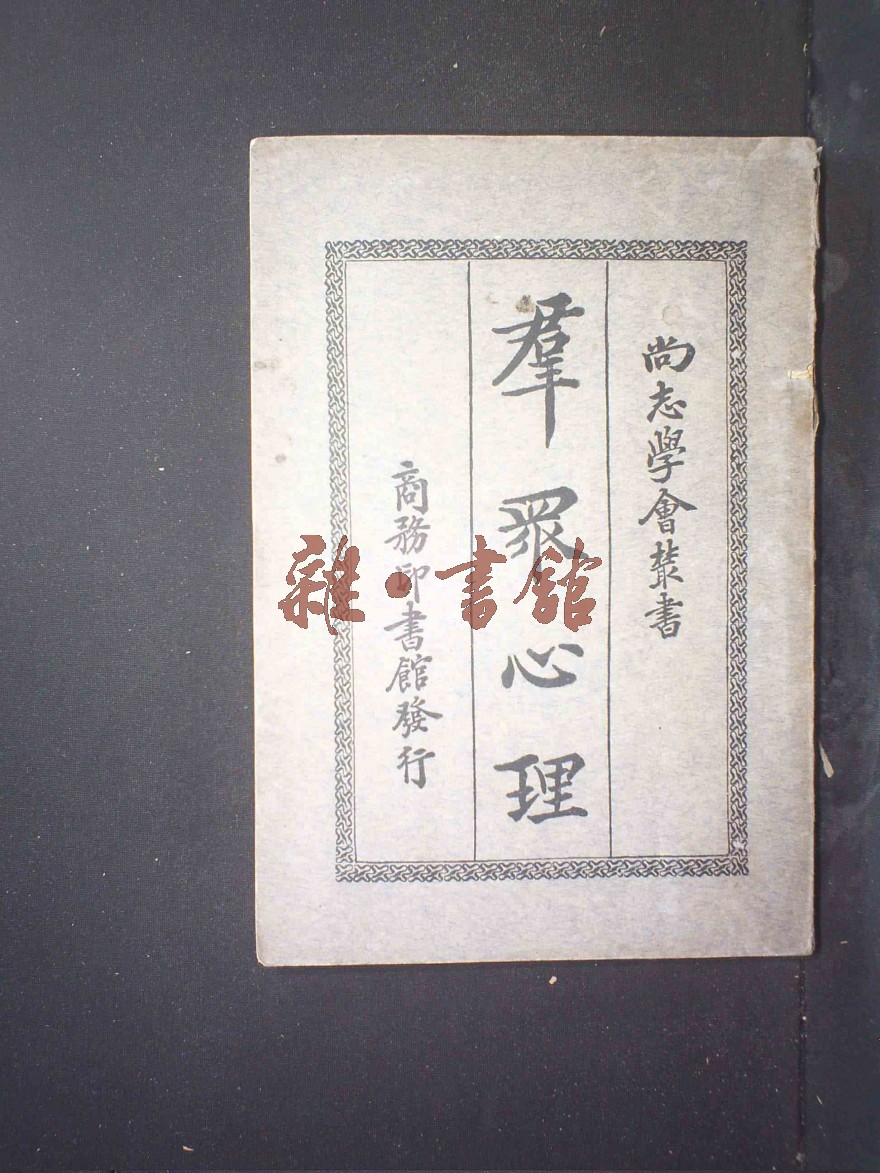 尚志學會叢書
羣眾心理
商務印書館發行
雜·書館